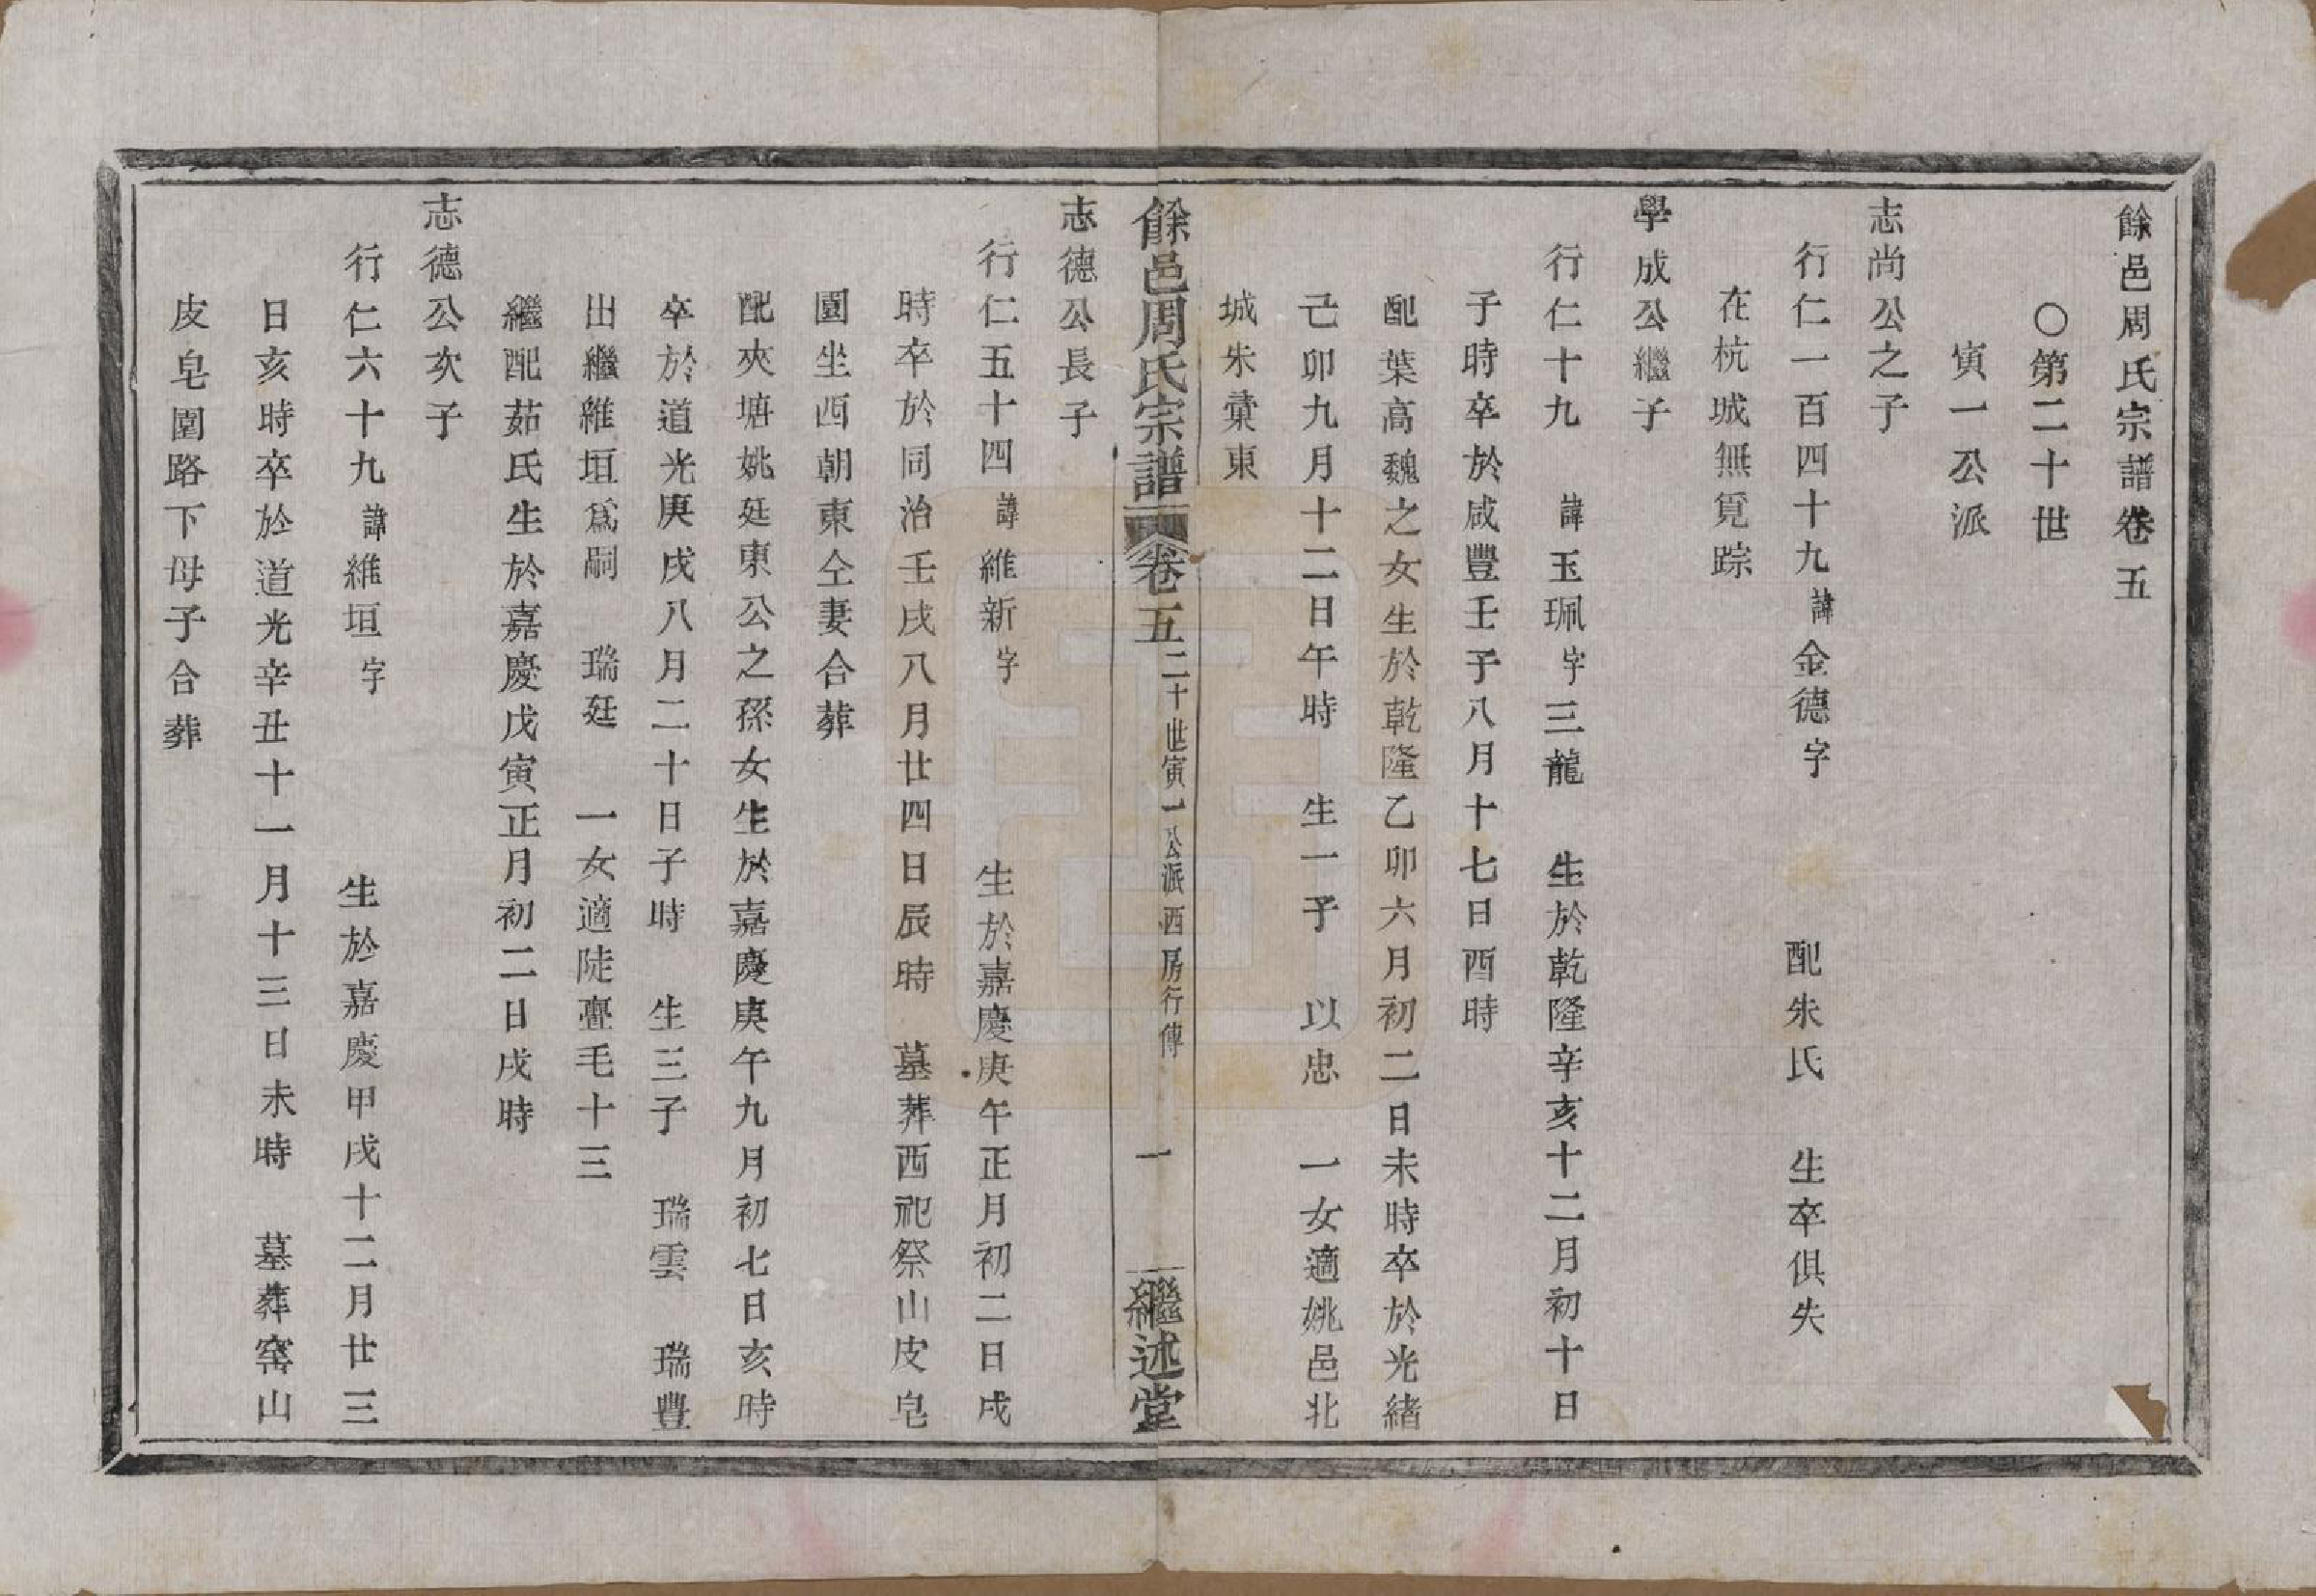 餘邑周氏宗譜卷五
〇第二十世
寅一公派
志尚公之子
行仁一百四十九諱金德字　配朱氏　生卒俱失
在杭城無覓踪
學成公繼子
行仁十九　諱玉珮字三龍　生於乾隆辛亥十二月初十日
子時卒於咸豐壬子八月十七日酉時
配葉高魏之女生於乾隆乙卯六月初二日未時卒於光緒
己卯九月十二日午時　生一子　以忠　一女適姚邑北
城朱彙東
餘邑周氏宗譜　卷五　二十世寅一公派西房行傳　一　繼述堂
志德公長子
行仁五十四諱維新字　生於嘉慶庚午正月初二日戌
時卒於同治壬戌八月廿四日辰時　墓葬西祀祭山皮皂
園坐西朝東仝妻合葬
配夾塘姚廷東公之孫女生於嘉慶庚午九月初七日亥時
卒於道光庚戌八月二十日子時　生三子　瑞雲　瑞豐
出繼維垣爲嗣　瑞廷　一女適陡亹毛十三
繼配茹氏生於嘉慶戊寅正月初二日戌時
志德公次子
行仁六十九諱維垣字　生於嘉慶甲戌十二月廿三
日亥時卒於道光辛丑十一月十三日未時　墓葬窰山
皮皂園路下母子合葬